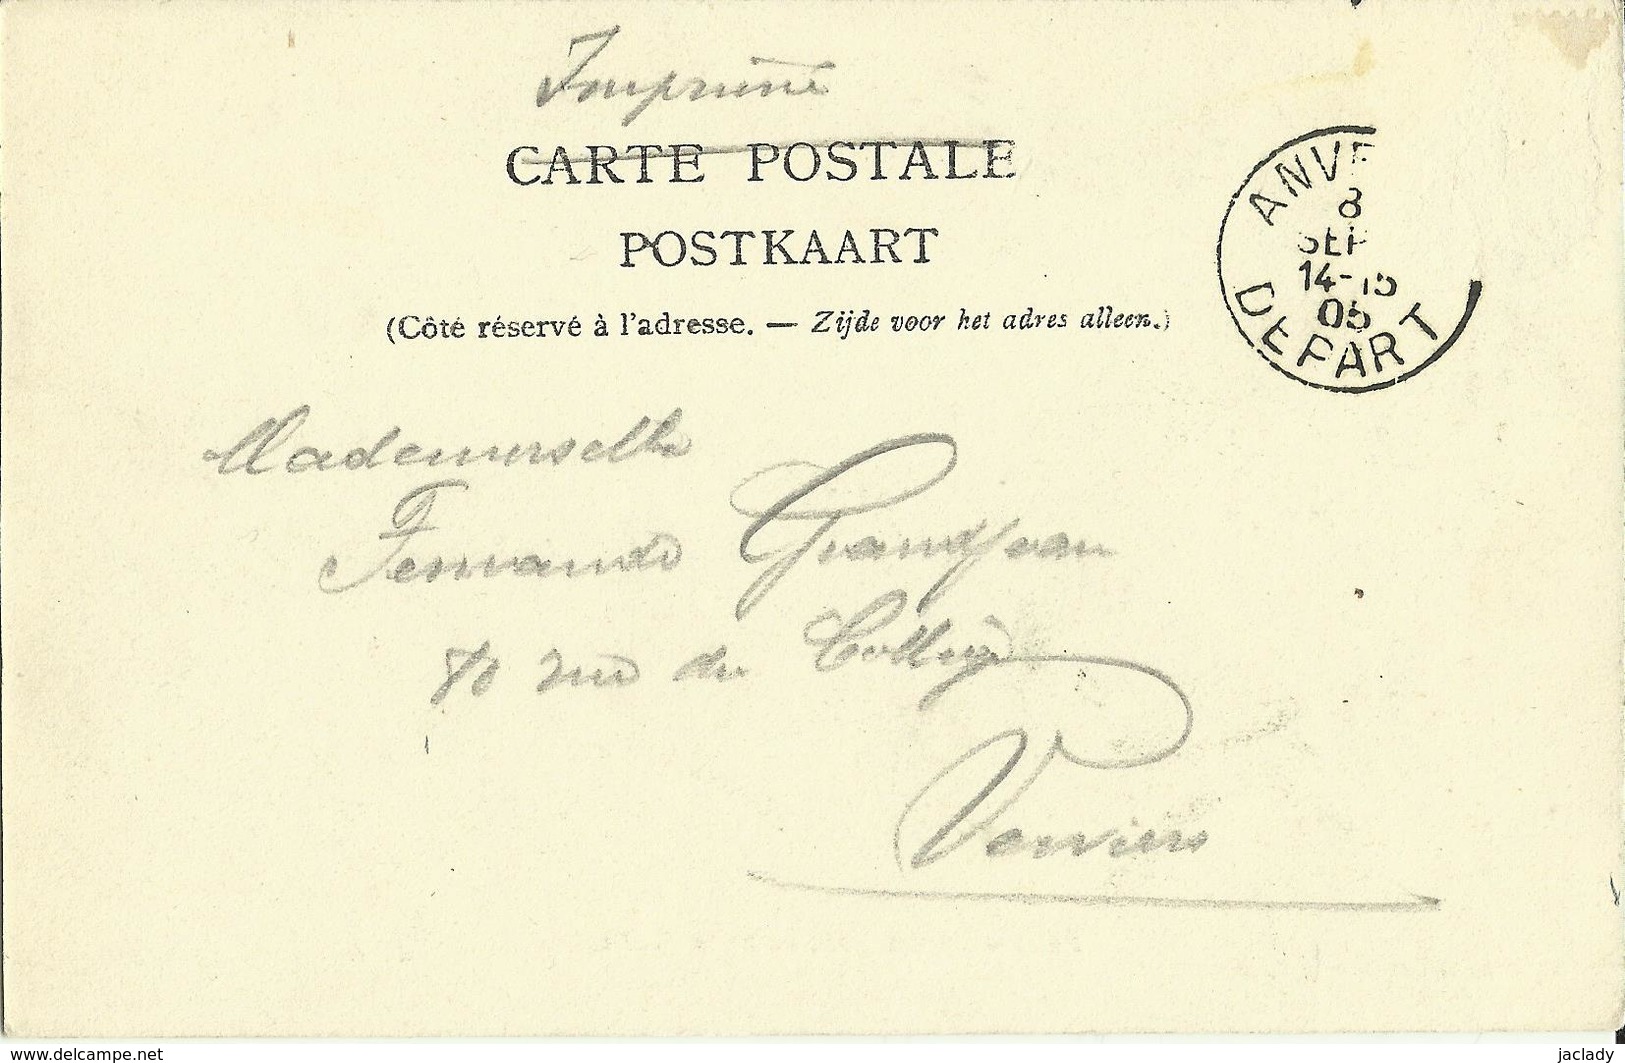 Imprimé
CARTE POSTALE
POSTKAART
(Côté réservé à l'adresse. — Zijde voor het adres alleen.)
ANVE
8
SEP
14-15
05
DEPART
Mademoiselle
Fernande Grandjean
80 rue du Collège
Verviers
delcampe.net
jaclady